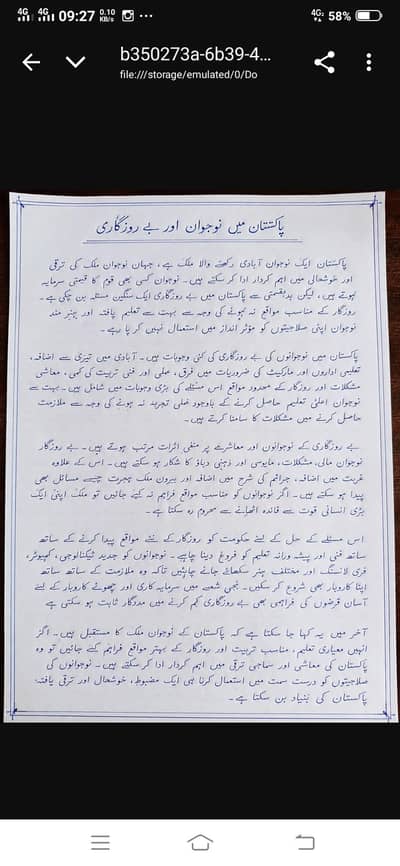 09:27
0.10
KB/s
58%
b350273a-6b39-4...
file:///storage/emulated/0/Do
پاکستان میں نوجوان اور بے روزگاری
پاکستان ایک نوجوان آبادی رکھنے والا ملک ہے، جہاں نوجوان ملک کی ترقی
اور خوشحالی میں اہم کردار ادا کر سکتے ہیں۔ نوجوان کسی بھی قوم کا قیمتی سرمایہ
ہوتے ہیں، لیکن بدقسمتی سے پاکستان میں بے روزگاری ایک سنگین مسئلہ بن چکی ہے۔
روزگار کے مناسب مواقع نہ ہونے کی وجہ سے بہت سے تعلیم یافتہ اور ہنر مند
نوجوان اپنی صلاحیتوں کو مؤثر انداز میں استعمال نہیں کر پا رہے۔
پاکستان میں نوجوانوں کی بے روزگاری کی کئی وجوہات ہیں۔ آبادی میں تیزی سے اضافہ،
تعلیمی اداروں اور مارکیٹ کی ضروریات میں فرق، عملی اور فنی تربیت کی کمی، معاشی
مشکلات اور روزگار کے محدود مواقع اس مسئلے کی بڑی وجوہات میں شامل ہیں۔ بہت سے
نوجوان اعلیٰ تعلیم حاصل کرنے کے باوجود عملی تجربہ نہ ہونے کی وجہ سے ملازمت
حاصل کرنے میں مشکلات کا سامنا کرتے ہیں۔
بے روزگاری کے نوجوانوں اور معاشرے پر منفی اثرات مرتب ہوتے ہیں۔ بے روزگار
نوجوان مالی مشکلات، مایوسی اور ذہنی دباؤ کا شکار ہو سکتے ہیں۔ اس کے علاوہ
غربت میں اضافہ، جرائم کی شرح میں اضافہ اور بیرون ملک ہجرت جیسے مسائل بھی
پیدا ہو سکتے ہیں۔ اگر نوجوانوں کو مناسب مواقع فراہم نہ کیے جائیں تو ملک اپنی ایک
بڑی انسانی قوت سے فائدہ اٹھانے سے محروم رہ سکتا ہے۔
اس مسئلے کے حل کے لئے حکومت کو روزگار کے نئے مواقع پیدا کرنے کے ساتھ
ساتھ فنی اور پیشہ ورانہ تعلیم کو فروغ دینا چاہیے۔ نوجوانوں کو جدید ٹیکنالوجی، کمپیوٹر،
فری لانسنگ اور مختلف ہنر سکھائے جانے چاہئیں تاکہ وہ ملازمت کے ساتھ ساتھ
اپنا کاروبار بھی شروع کر سکیں۔ نجی شعبے میں سرمایہ کاری اور چھوٹے کاروبار کے لئے
آسان قرضوں کی فراہمی بھی بے روزگاری کم کرنے میں مددگار ثابت ہو سکتی ہے
آخر میں یہ کہا جا سکتا ہے کہ پاکستان کے نوجوان ملک کا مستقبل ہیں۔ اگر
انہیں معیاری تعلیم، مناسب تربیت اور روزگار کے بہتر مواقع فراہم کئے جائیں تو وہ
پاکستان کی معاشی اور سماجی ترقی میں اہم کردار ادا کر سکتے ہیں۔ نوجوانوں کی
صلاحیتوں کو درست سمت میں استعمال کرنا ہی ایک مضبوط، خوشحال اور ترقی یافتہ
پاکستان کی بنیاد بن سکتا ہے۔